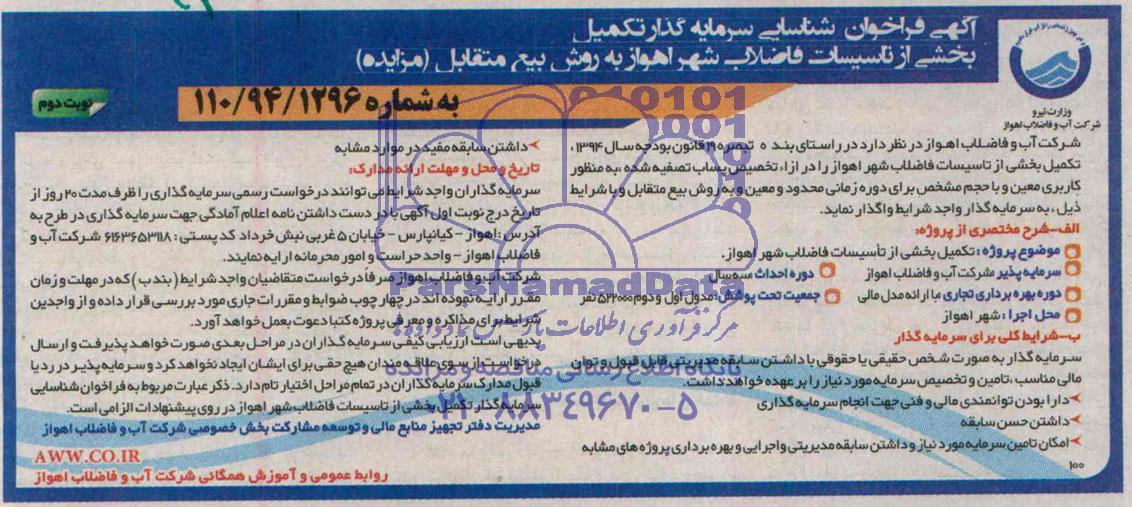 آگهی فراخوان شناسایی سرمایه گذار تکمیل
بخشی از تاسیسات فاضلاب شهر اهواز به روش بیع متقابل (مزایده)
به شماره ۱۱۰/۹۴/۱۲۹۶
نوبت دوم
وزارت نیرو
شرکت آب و فاضلاب اهواز
شرکت آب و فاضلاب اهواز در نظر دارد در راستای بند ه تبصره ۱۹ قانون بودجه سال ۱۳۹۴،
تکمیل بخشی از تاسیسات فاضلاب شهر اهواز را در ازاء تخصیص پساب تصفیه شده، به منظور
کاربری معین و با حجم مشخص برای دوره زمانی محدود و معین و به روش بیع متقابل و با شرایط
ذیل، به سرمایه گذار واجد شرایط واگذار نماید.
الف-شرح مختصری از پروژه:
موضوع پروژه: تکمیل بخشی از تأسیسات فاضلاب شهر اهواز.
سرمایه پذیر شرکت آب و فاضلاب اهواز
دوره احداث سه سال
دوره بهره برداری تجاری با ارائه مدل مالی
جمعیت تحت پوشش: مدول اول و دوم ۵۲۲۰۰۰ نفر
محل اجرا: شهر اهواز
ب-شرایط کلی برای سرمایه گذار
سرمایه گذار به صورت شخص حقیقی یا حقوقی با داشتن سابقه مدیریتی قابل قبول و توان
مالی مناسب، تامین و تخصیص سرمایه مورد نیاز را بر عهده خواهد داشت.
دارا بودن توانمندی مالی و فنی جهت انجام سرمایه گذاری
داشتن حسن سابقه
امکان تامین سرمایه مورد نیاز و داشتن سابقه مدیریتی و اجرایی و بهره برداری پروژه های مشابه
۱۰۰
داشتن سابقه مفید در موارد مشابه
تاریخ و محل و مهلت ارائه مدارک:
سرمایه گذاران واجد شرایط می توانند درخواست رسمی سرمایه گذاری را ظرف مدت ۲۰ روز از
تاریخ درج نوبت اول آگهی با در دست داشتن نامه اعلام آمادگی جهت سرمایه گذاری در طرح به
آدرس: اهواز - کیانپارس - خیابان ۵ غربی نبش خرداد کد پستی: ۶۱۶۳۶۵۳۱۱۸ شرکت آب و
فاضلاب اهواز - واحد حراست و امور محرمانه ارایه نمایند.
شرکت آب و فاضلاب اهواز صرفاً درخواست متقاضیان واجد شرایط (بند ب) که در مهلت و زمان
مقرر ارایه نموده اند در چهار چوب ضوابط و مقررات جاری مورد بررسی قرار داده و از واجدین
شرایط برای مذاکره و معرفی پروژه کتبا دعوت بعمل خواهد آورد.
بدیهی است ارزیابی کیفی سرمایه گذاران در مراحل بعدی صورت خواهد پذیرفت و ارسال
درخواست از سوی علاقه مندان هیچ حقی برای ایشان ایجاد نخواهد کرد و سرمایه پذیر در رد یا
قبول مدارک سرمایه گذاران در تمام مراحل اختیار تام دارد. ذکر عبارت مربوط به فراخوان شناسایی
سرمایه گذار تکمیل بخشی از تاسیسات فاضلاب شهر اهواز در روی پیشنهادات الزامی است.
مدیریت دفتر تجهیز منابع مالی و توسعه مشارکت بخش خصوصی شرکت آب و فاضلاب اهواز
AWW.CO.IR
روابط عمومی و آموزش همگانی شرکت آب و فاضلاب اهواز
ParsNamadData
مرکز فرآوری اطلاعات پارس نماد داده ها
پایگاه اطلاع رسانی مناقصه و مزایده
۰۲۱-۸۸۳۴۹۶۷۰-۵